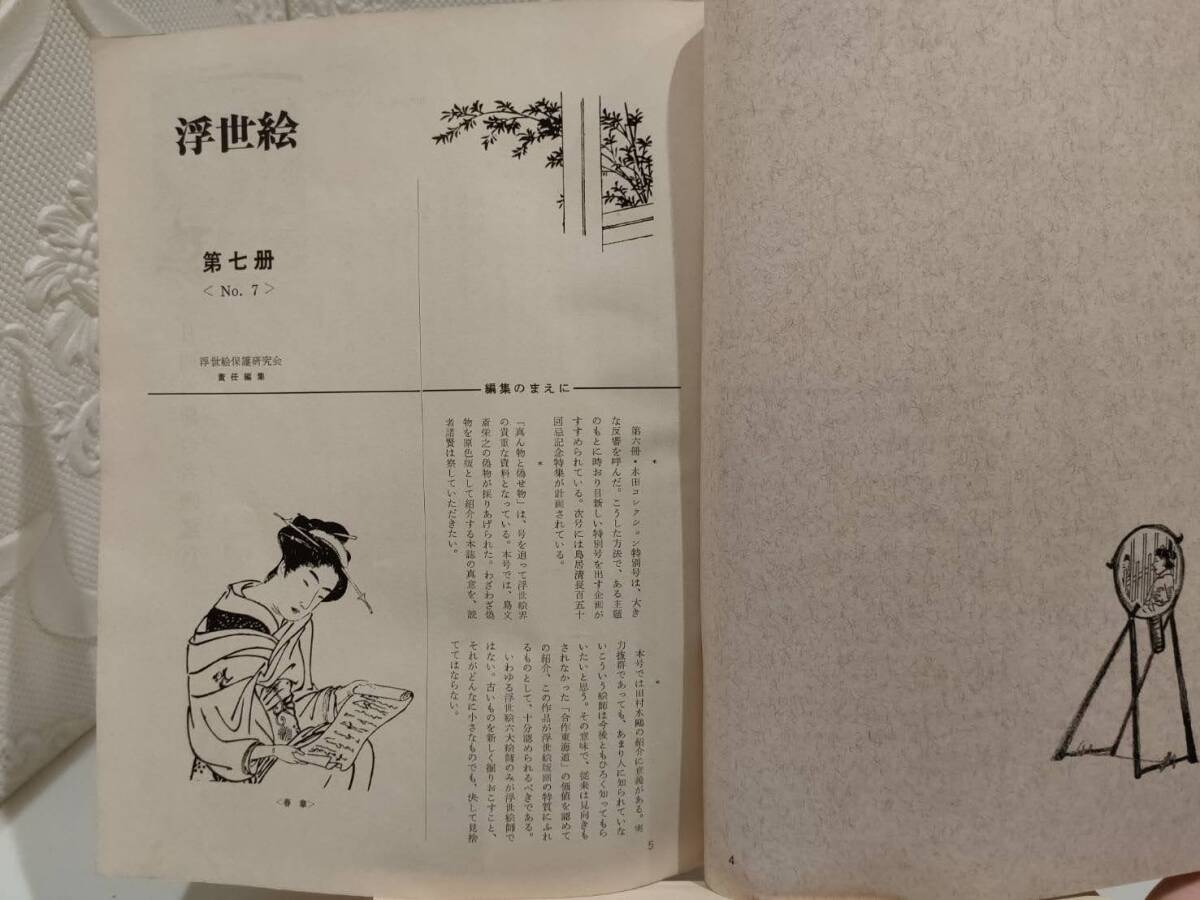 浮世絵
第七册
< No. 7 >
浮世絵保護研究会
責任編集
編集のまえに
*
第六冊・木田コレクション特別号は、大き
な反響を呼んだ。こうした方法で、ある主題
のもとに時おり目新しい特別号を出す企画が
すすめられている。次号には鳥居清長百五十
回忌記念特集が計画されている。
*
「真ん物と偽せ物」は、号を追って浮世絵界
の貴重な資料となっている。本号では、鳥文
斎栄之の偽物が採りあげられた。わざわざ偽
物を原色版として紹介する本誌の真意を、読
者諸賢は察していただきたい。
*
本号では田村水鷗の紹介に意義がある。実
力抜群であっても、あまり人に知られていな
いこういう絵師は今後ともひろく知ってもら
いたいと思う。その意味で、従来は見向きも
されなかった「合作東海道」の価値を認めて
の紹介、この作品が浮世絵版画の特質にふれ
るものとして、十分認められるべきである。
いわゆる浮世絵六大絵師のみが浮世絵師で
はない。古いものを新しく掘りおこすこと、
それがどんなに小さなものでも、決して見捨
ててはならない。
<春章>
5
4